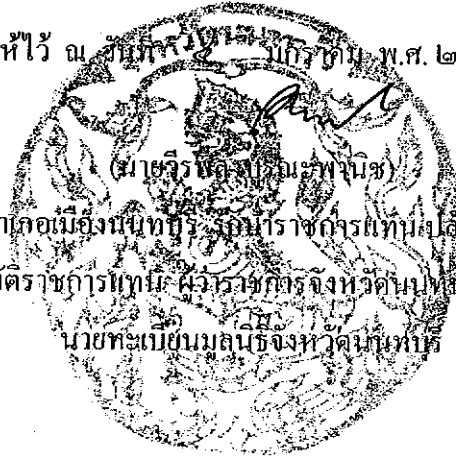 ห้ไว้ ณ วันที่ ๔ มกราคม พ.ศ. ๒
(นายวีรพล บูรณะพานิช)
เภอเมืองนนทบุรี รักษาราชการแทน ปล
ัติราชการแทน ผู้ว่าราชการจังหวัดนนทบ
นายทะเบียนมูลนิธิจังหวัดนนทบุรี